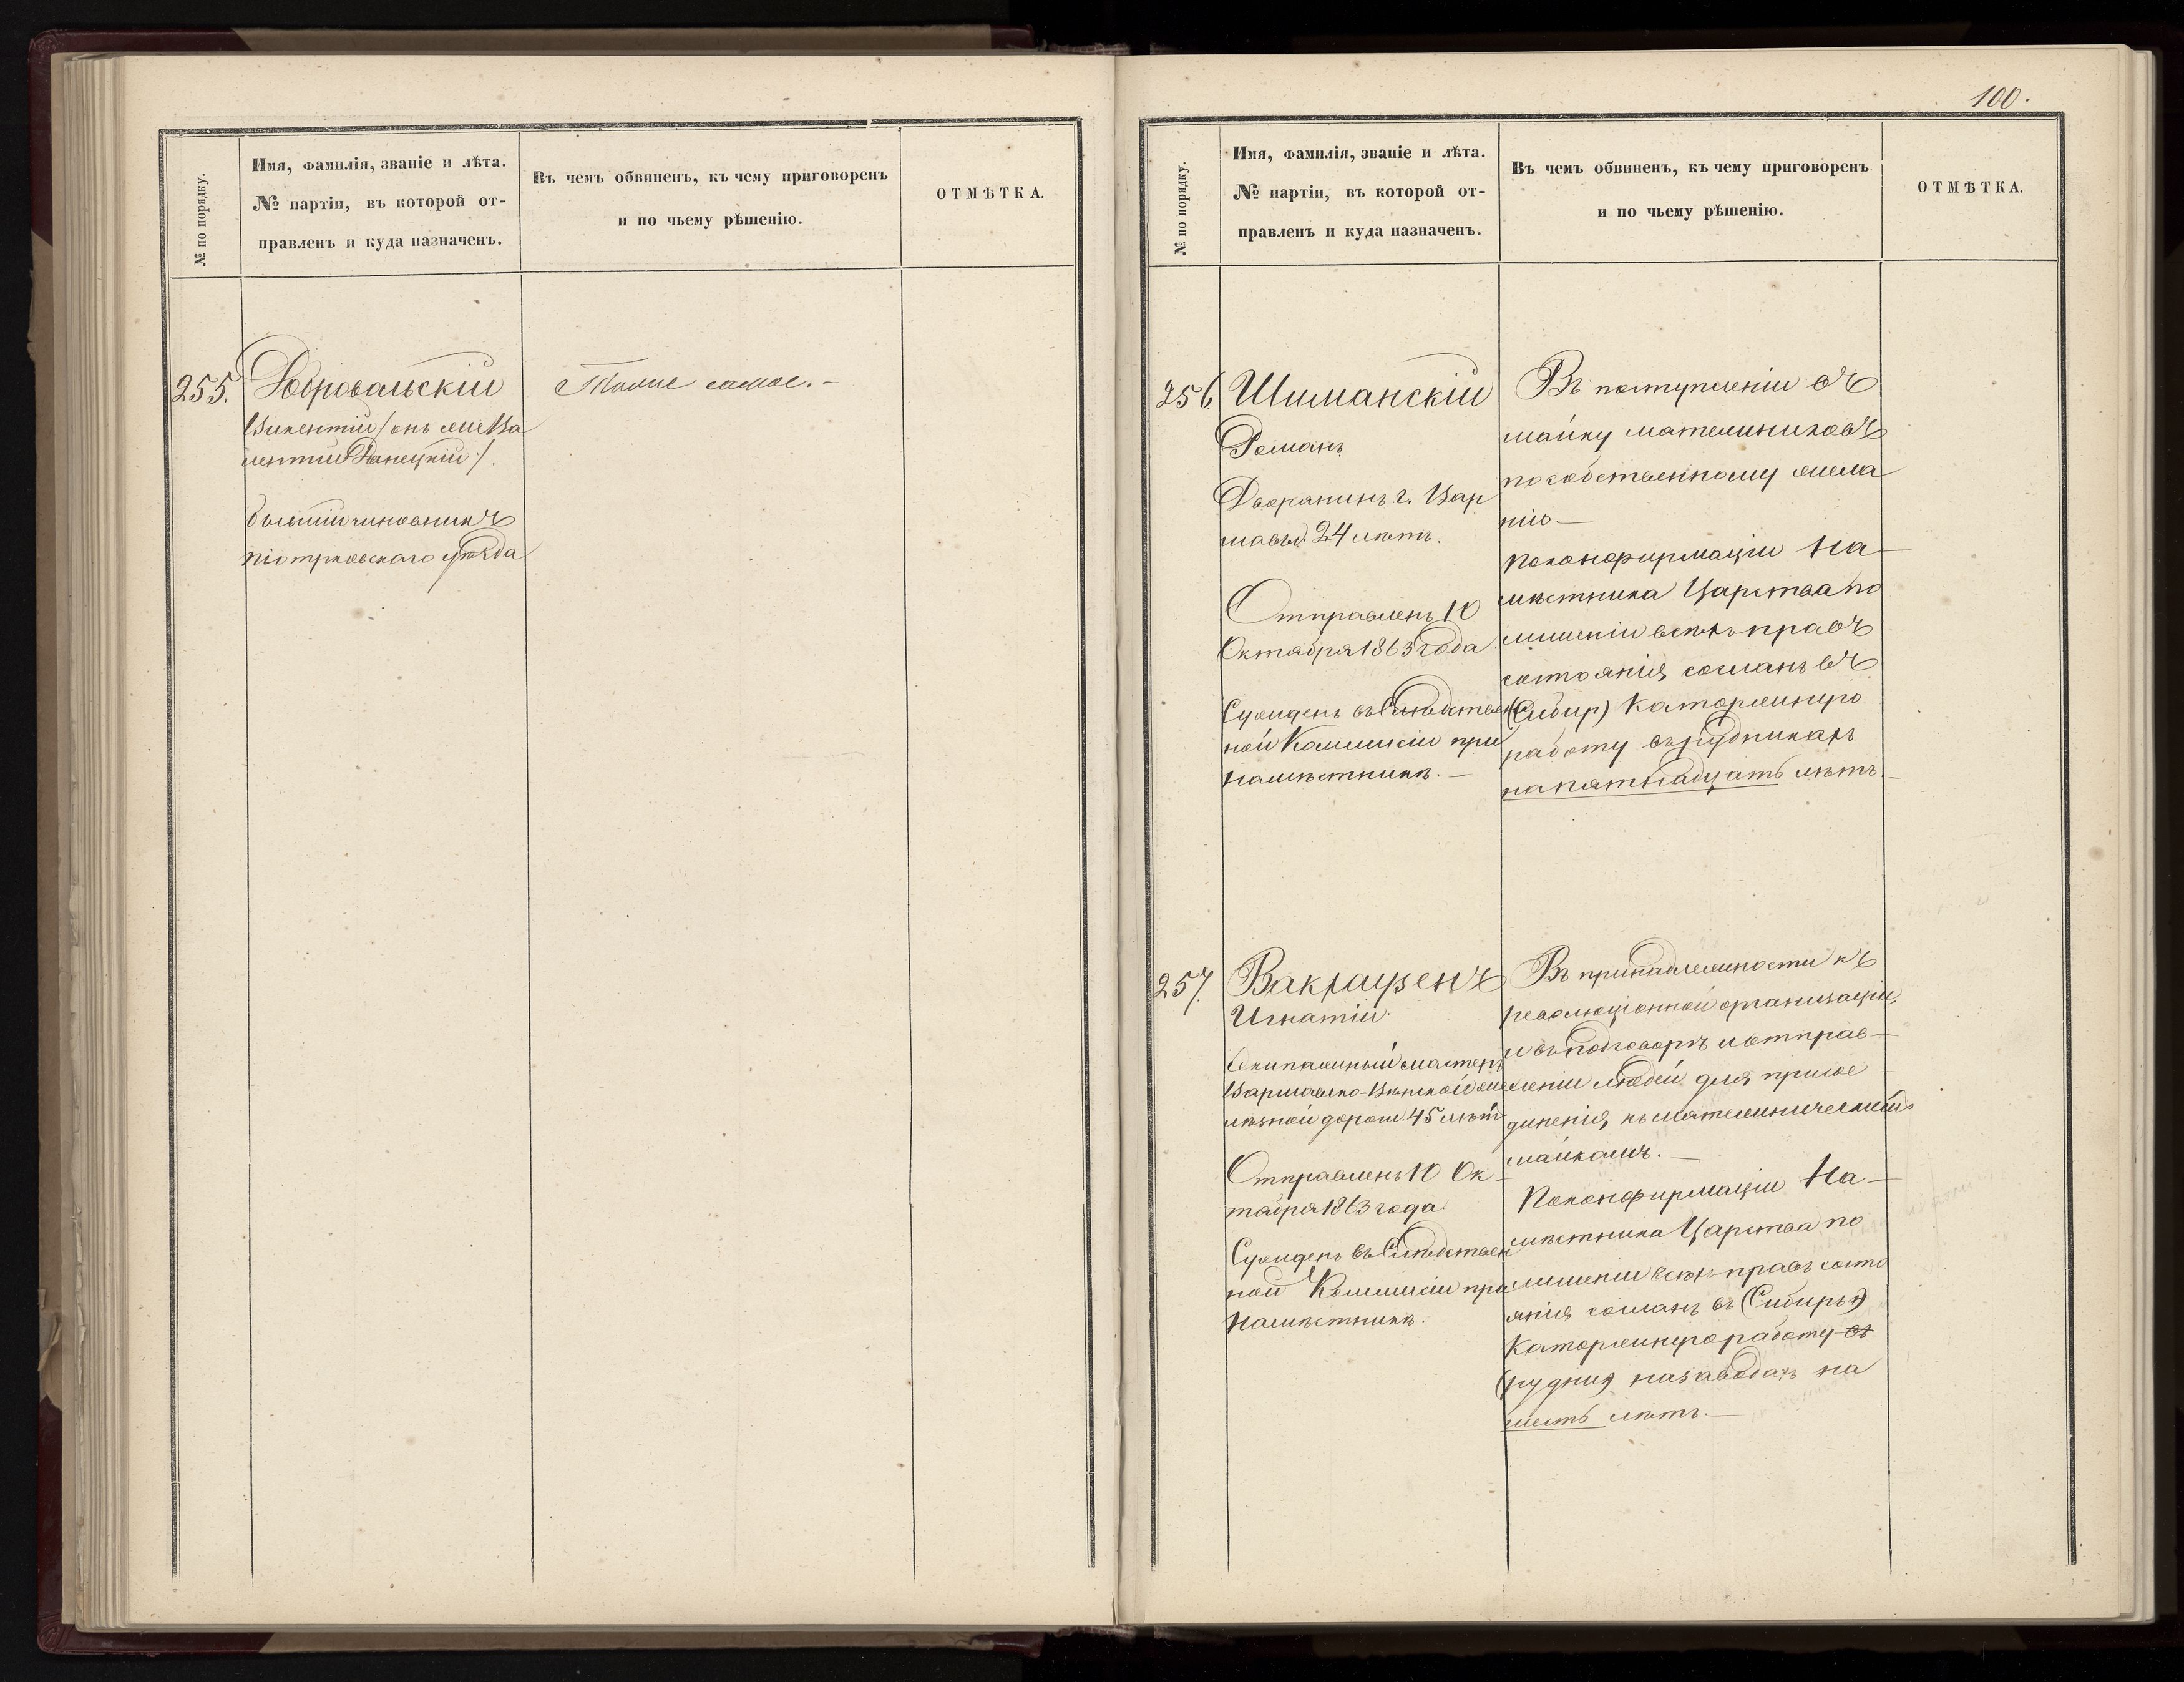 № по порядку.
Имя, фамилія, званіе и лѣта.
№ партіи, въ которой от-
правленъ и куда назначенъ.
Въ чемъ обвиненъ, къ чему приговоренъ
и по чьему рѣшенію.
ОТМѢТКА.
255.
Добровольскій
Викентій /онъ же Ва
лентій Данецкій/.
бывшій чиновникъ
Піотрковскаго уѣзда
Тоже самое. -
100.
№ по порядку.
Имя, фамилія, званіе и лѣта.
№ партіи, въ которой от-
правленъ и куда назначенъ.
Въ чемъ обвиненъ, къ чему приговоренъ
и по чьему рѣшенію.
ОТМѢТКА.
256
Шиманскій
Романъ
Дворянинъ г. Вар
шавы. 24 лѣтъ.
Отправленъ 10
Октября 1863 года.
Сужденъ въ Слѣдствен
ной Коммисіи при
Намѣстникѣ. —
Въ поступленіи въ
шайку мятежниковъ
по собственному жела
нію. —
По конфирмаціи На-
мѣстника Царства по
лишеніи всѣхъ правъ
состоянія, сосланъ въ
(Сибир) Каторжную
работу въ рудникахъ
на пятнадцать лѣтъ. —
257.
Вакхаузенъ
Игнатій.
Экипажный мастеръ
Варшавско-Вѣнской же
лѣзной дороги. 45 лѣтъ
Отправленъ 10 Ок-
тября 1863 года
Сужденъ въ Слѣдствен
ной Коммисіи при
Намѣстникѣ.
Въ принадлежности къ
революціонной организаціи,
и въ подговорѣ и отправ-
леніи людей для присое
диненія, къ мятежническимъ
шайкамъ. —
По конфирмаціи На-
мѣстника Царства по
лишеніи всѣхъ правъ состо
янія сосланъ въ (Сибирь)
Каторжную работу въ
(рудник) на заводахъ на
шесть лѣтъ. —